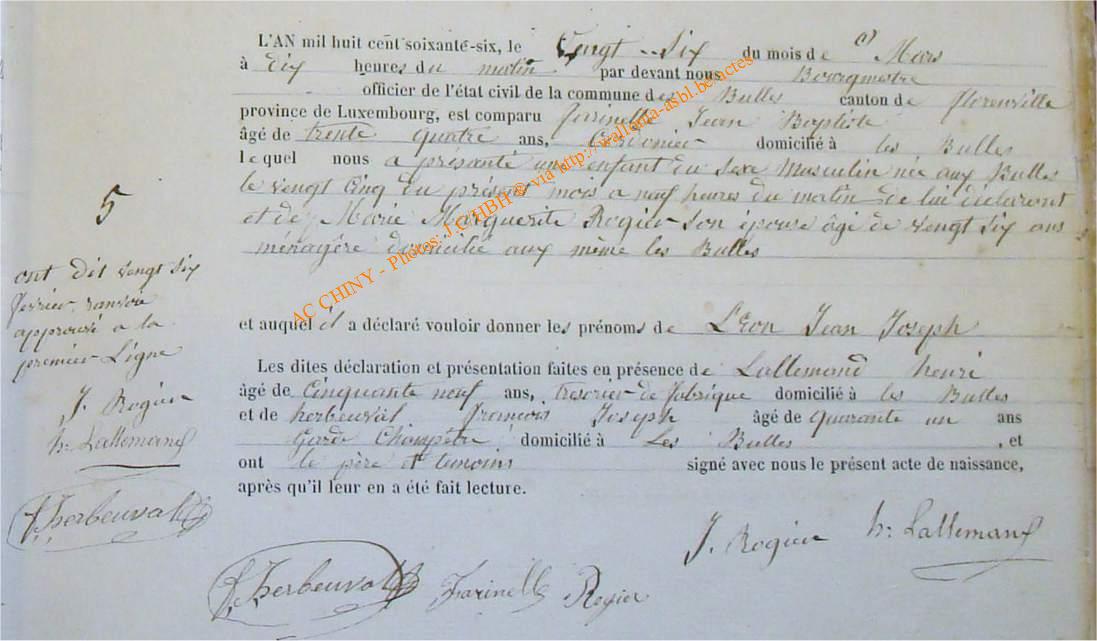 L'AN mil huit cent soixante-six, le Vingt Six du mois de (1) Mars
à Dix heures du matin par devant nous Bourgmestre
officier de l'état civil de la commune des Bulles canton de florenville
province de Luxembourg, est comparu Jean Baptiste
âgé de trente quatre ans, Cordonier domicilié à les Bulles
lequel nous a présanté un enfant du Sexe Masculin née aux Bulles
le vengt Cinq du présent mois a neuf heures du matin de lui déclarent
et de Marie Marguerite Rogier Son épouse âgé de vengt Six ans
ménagère domiciliée aux même les Bulles
5
ont dit vengt Six
fevrier
approuvé a la
premier Ligne
J. Rogier
h: Lallemand
Herbeuval
et auquel il a déclaré vouloir donner les prénoms de Léon Jean Joseph
Les dites déclaration et présentation faites en présence de Lallemand henri
âgé de Cinquante neuf ans, tresorier de fabrique domicilié à les Bulles
et de herbeuval francois Joseph âgé de quarante un ans
Garde Champêtre domicilié à Les Bulles , et
ont le père et temoins signé avec nous le présent acte de naissance,
après qu'il leur en a été fait lecture.
J. Rogier h: Lallemand
Herbeuval Farinelle Rogier
AC CHINY - Photos: J. CHBH @ via http://wallonia-asbl.be/actes